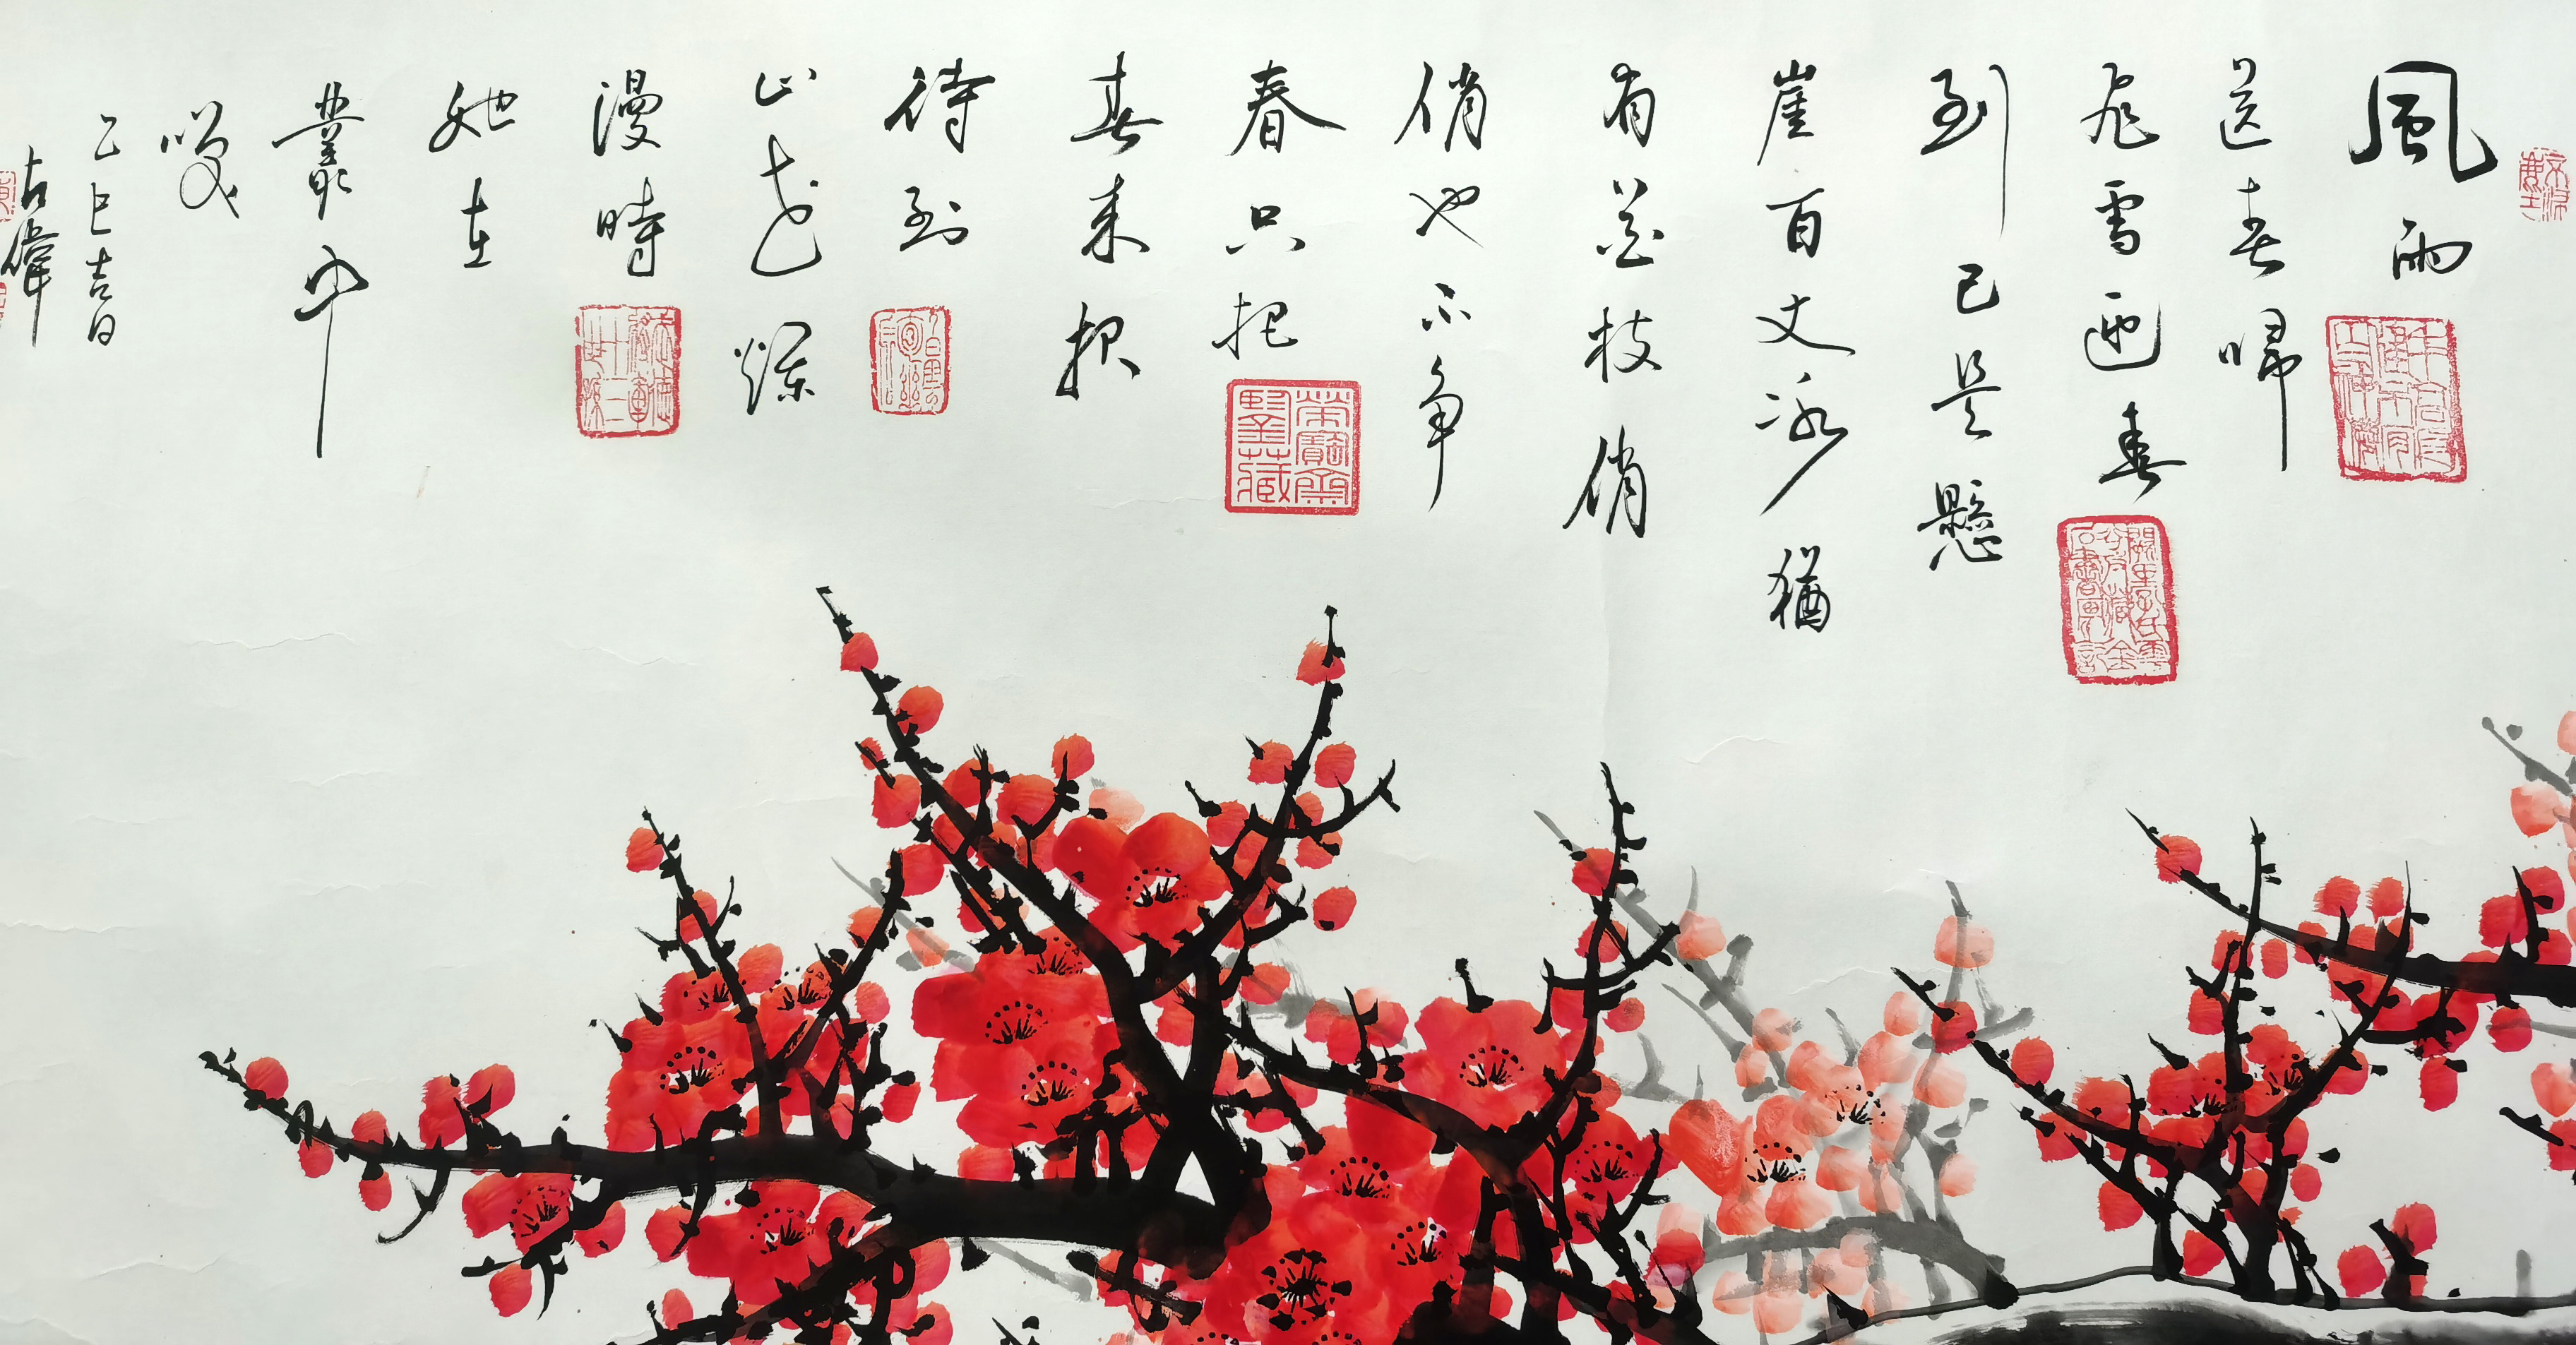 風雨
送春歸
飛雪迎春
到已是懸
崖百丈冰猶
有花枝俏
俏也不争
春只把
榮寶齋
鋻藏
春来报
待到
山花爛
漫時
她在
叢中
笑
乙巳吉日
古偉